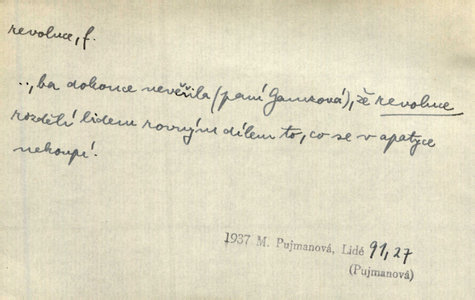 revoluce, f.
.., ba dokonce nevěřila (paní Gamzová), že revoluce
rozdělí lidem rovným dílem to, co se v apatyce
nekoupí.
1937 M. Pujmanová, Lidé 91,27
(Pujmanová)